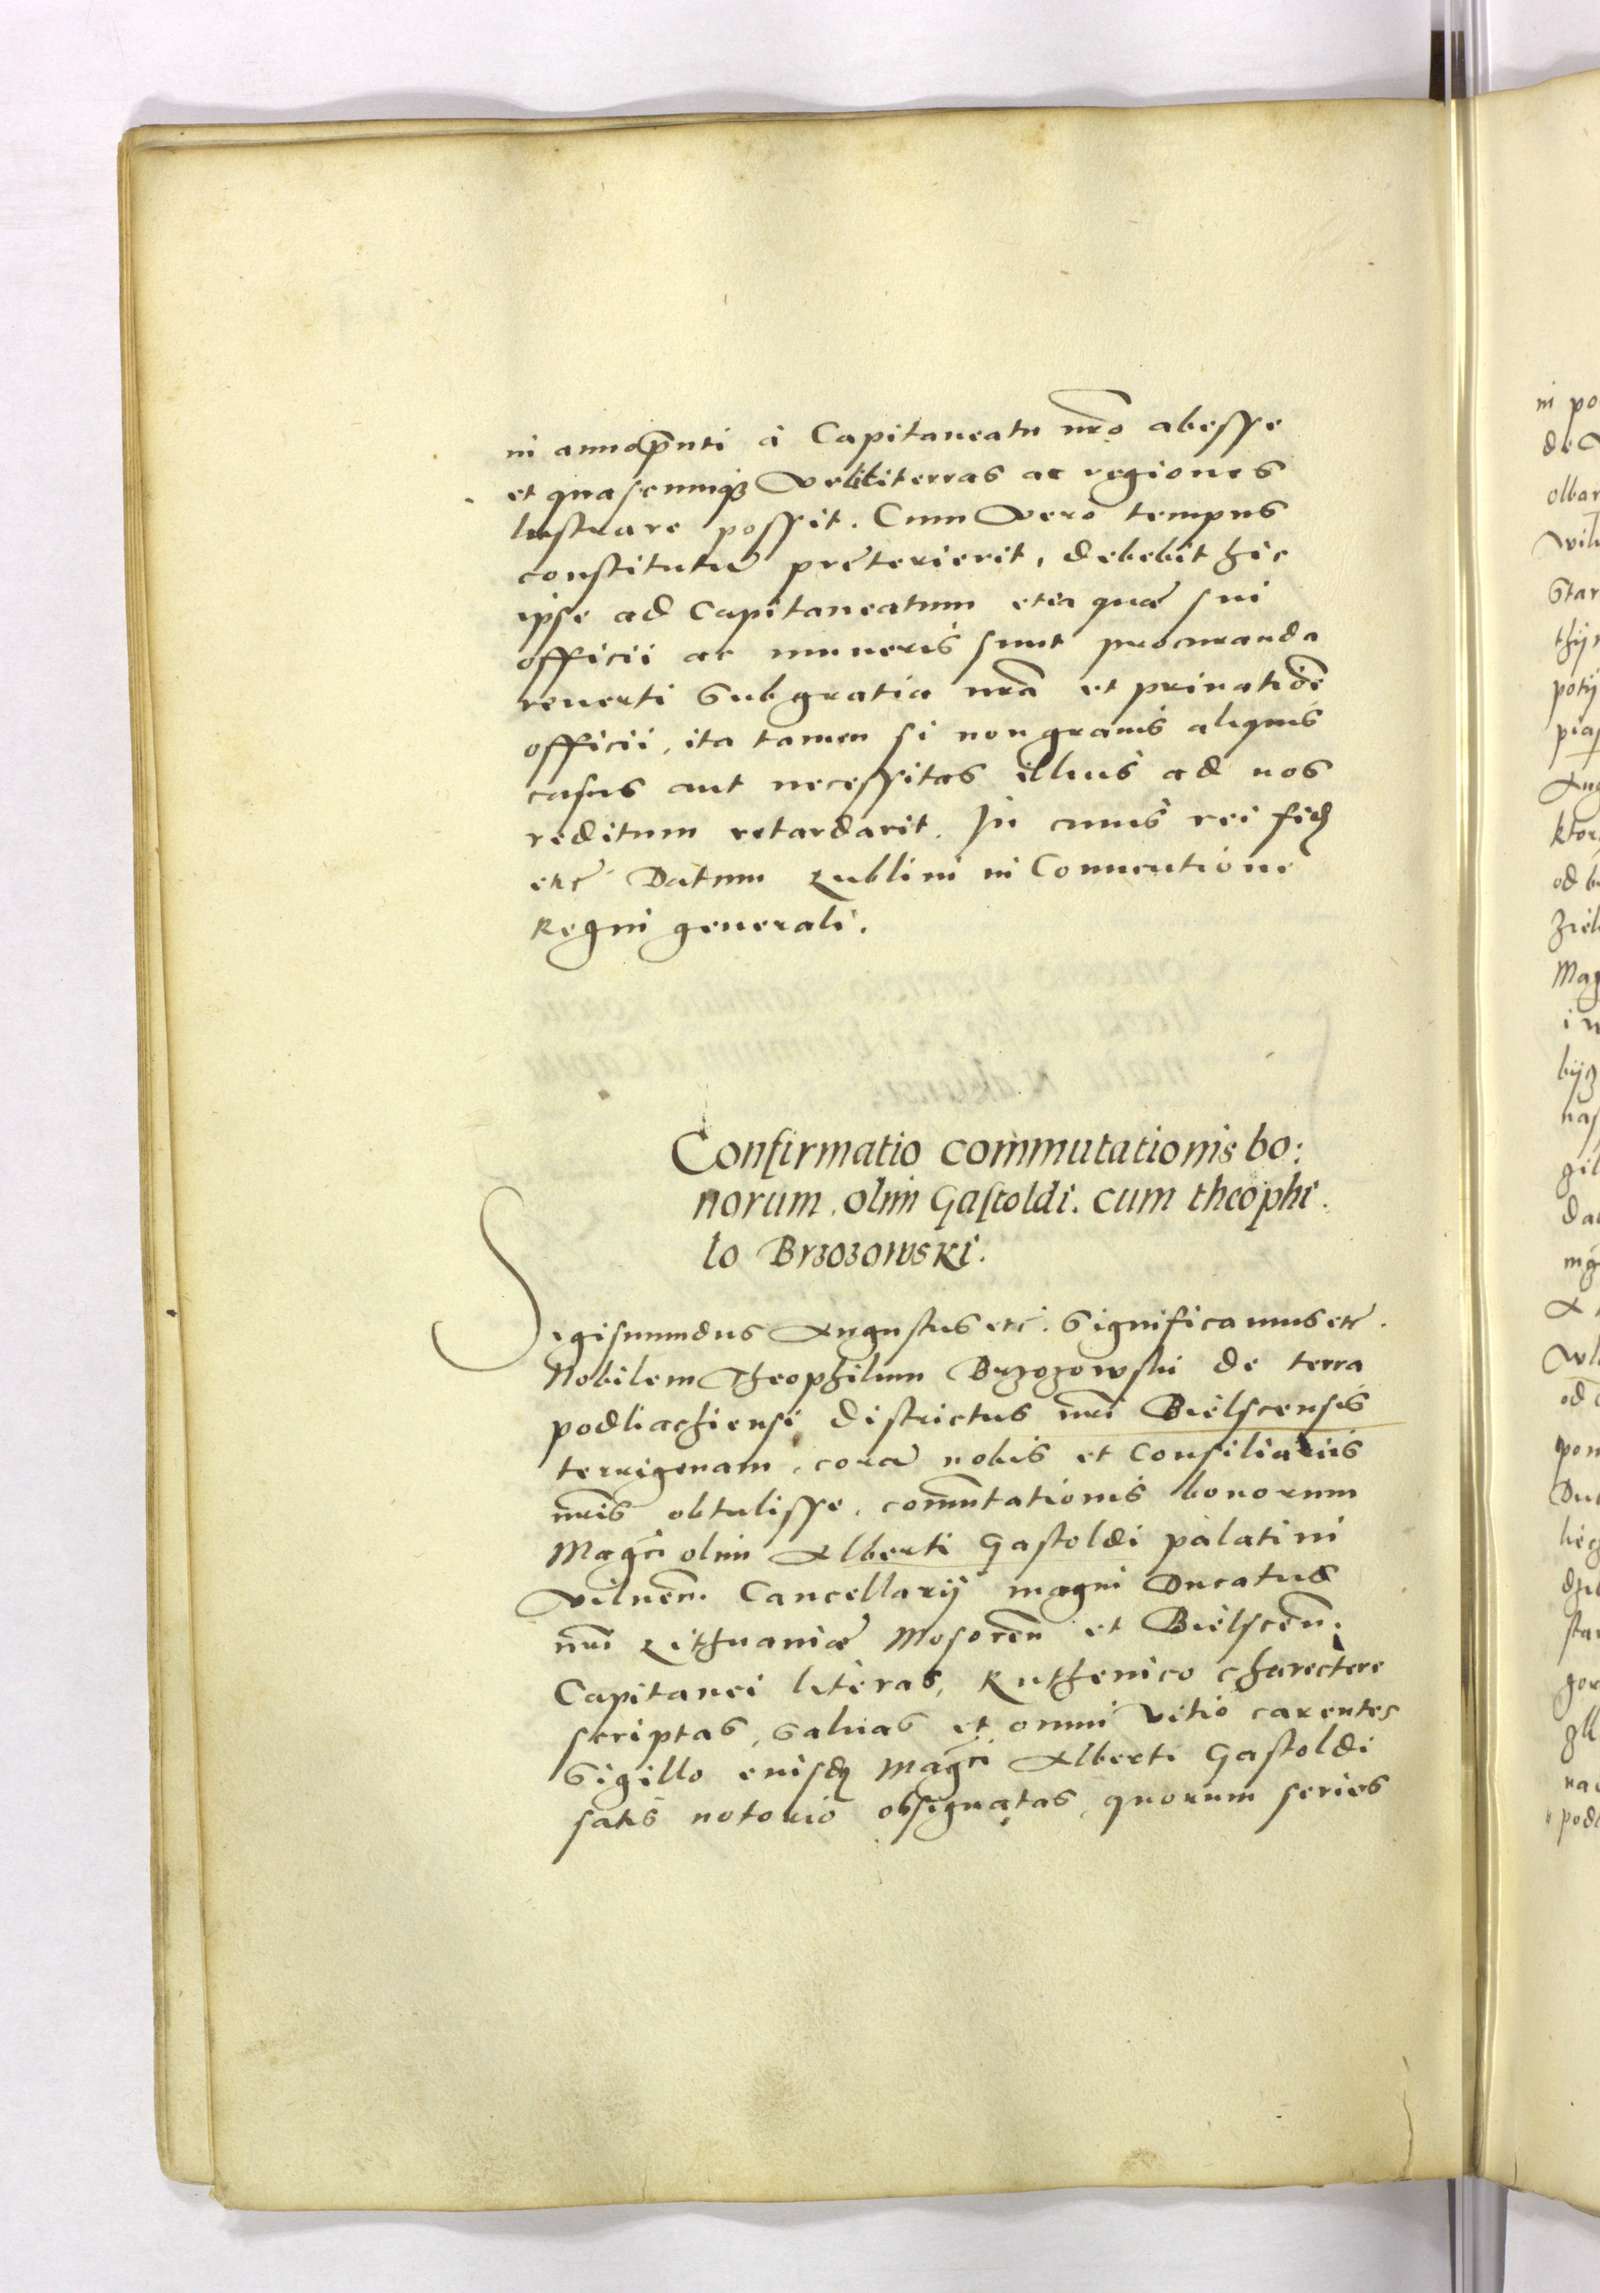 in anno pñti à Capitaneatu nr̃o abesse
et quascunq; velit terras ac regiones
lustrare possit. Cum vero tempus
constitutũ præterierit, debebit hic
ipse ad Capitaneatum et ea quæ sui
officii ac muneris sunt procuranda
reuerti sub gratia nr̃a et priuatiõe
officii, ita tamen si non grauis aliquis
casus aut necessitas illius ad nos
reditum retardarit. In cuius rei fidẽ
etc̃ Datum Lublini in Conuentione
Regni generali.
Confirmatio commutationis bo:
norum. olim Gastoldi. cum theophi.
lo Brzozowski.
Sigismundus Augustus etc̃. Significamus etc̃.
Nobilem Theophilum Brzozowski de terra
podliachiensi districtus nr̃i Bielscensis
terrigenam, corã nobis et Consiliariis
nr̃is obtulisse, com̃utationis bonorum
Magc̃i olim Alberti Gastoldi palatini
Vilneñ. Cancellarij magni Ducatus
nr̃i Lithuaniæ Mosoreñ et Bielsceñ.
Capitanei literas, Ruthenico charectere
scriptas, saluas et omni vitio carentes
Sigillo eiusdẽ Magc̃i Alberti Gastoldi
satis notorio obsignatas, quorum series